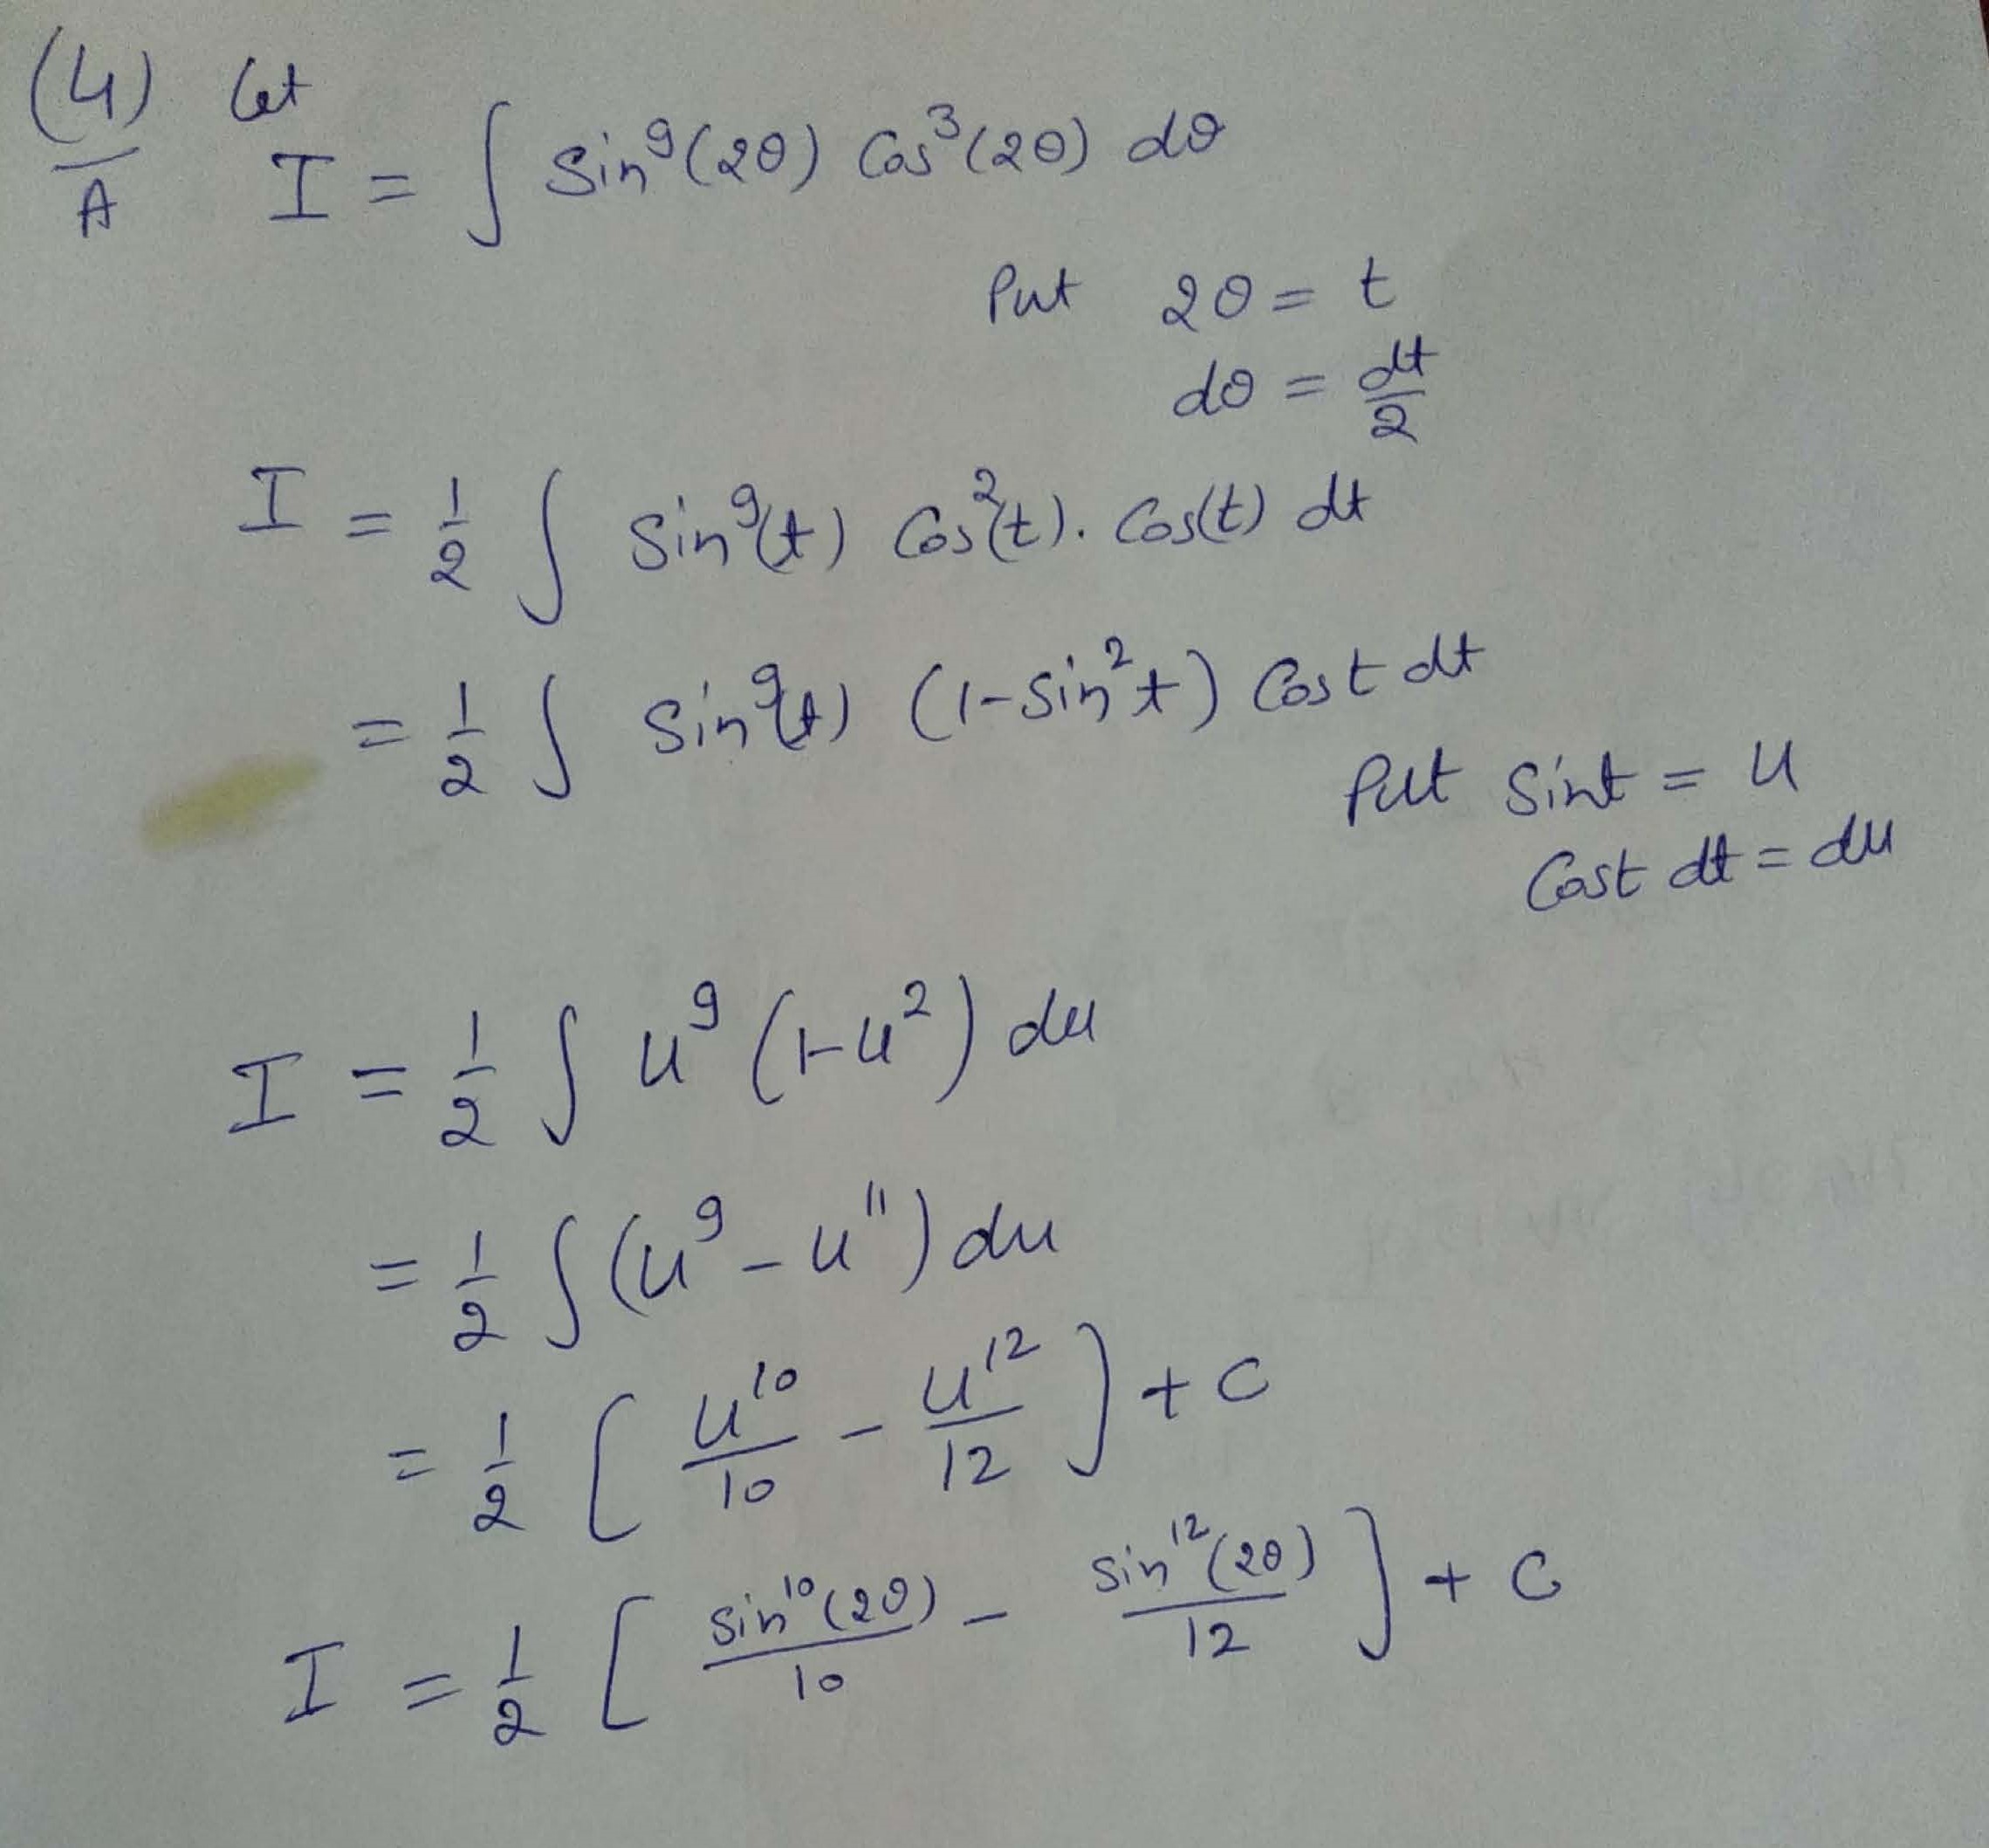 (4) Let
A I = ∫ Sin⁹(2θ) Cos³(2θ) dθ
Put 2θ = t
dθ = dt/2
I = 1/2 ∫ Sin⁹(t) Cos²(t). Cos(t) dt
= 1/2 ∫ Sin⁹(t) (1-Sin²t) Cost dt
Put Sint = u
Cost dt = du
I = 1/2 ∫ u⁹ (1-u²) du
= 1/2 ∫ (u⁹ - u¹¹) du
= 1/2 [ u¹⁰/10 - u¹²/12 ] + C
I = 1/2 [ sin¹⁰(2θ)/10 - sin¹²(2θ)/12 ] + C